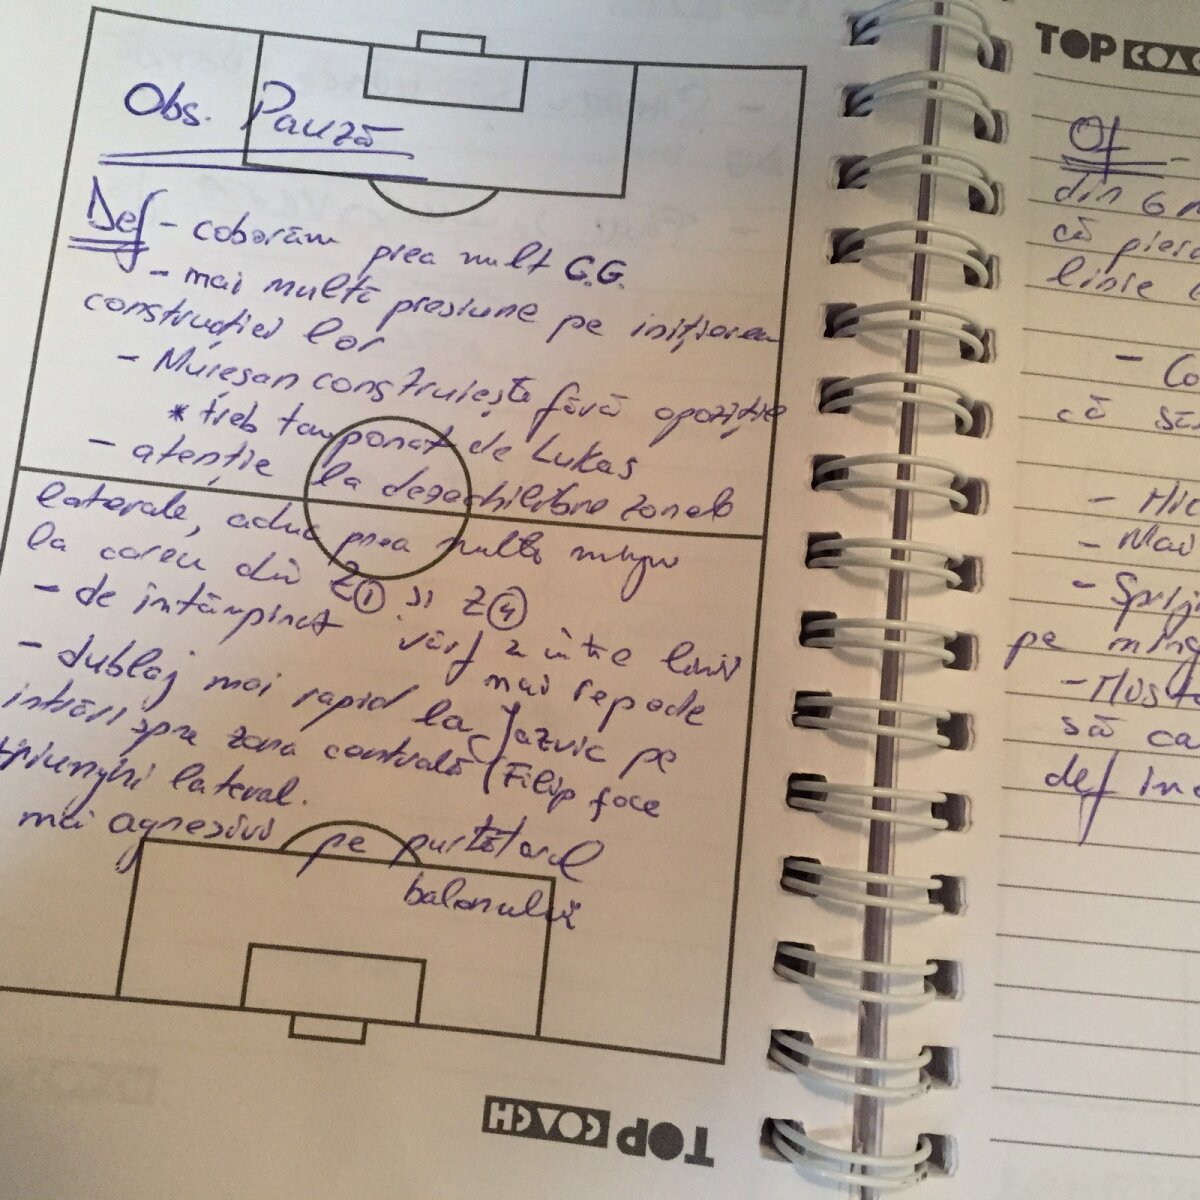 Obs. Pauză
Def - coborâm prea mult G.G.
- mai multă presiune pe inițierea
construcției lor
- Mureșan construiește fără opoziție
* treb tamponat de Lukas
- atenție la dezechilibre zonele
laterale, aduc prea multe mingi
la careu din Z1 și Z4
- de întâmpinat vârf 2 între linii
mai repede
- dublaj mai rapid la Jazvic pe
intrări spre zona centrală (Filip face
lateral.
mai agresivi pe purtătorul
balonului
TOP COACH
TOP
Of -
din 6
că
linie
- Co
că
-
- Mai
- Sprij
pe ming
-
să ca
def